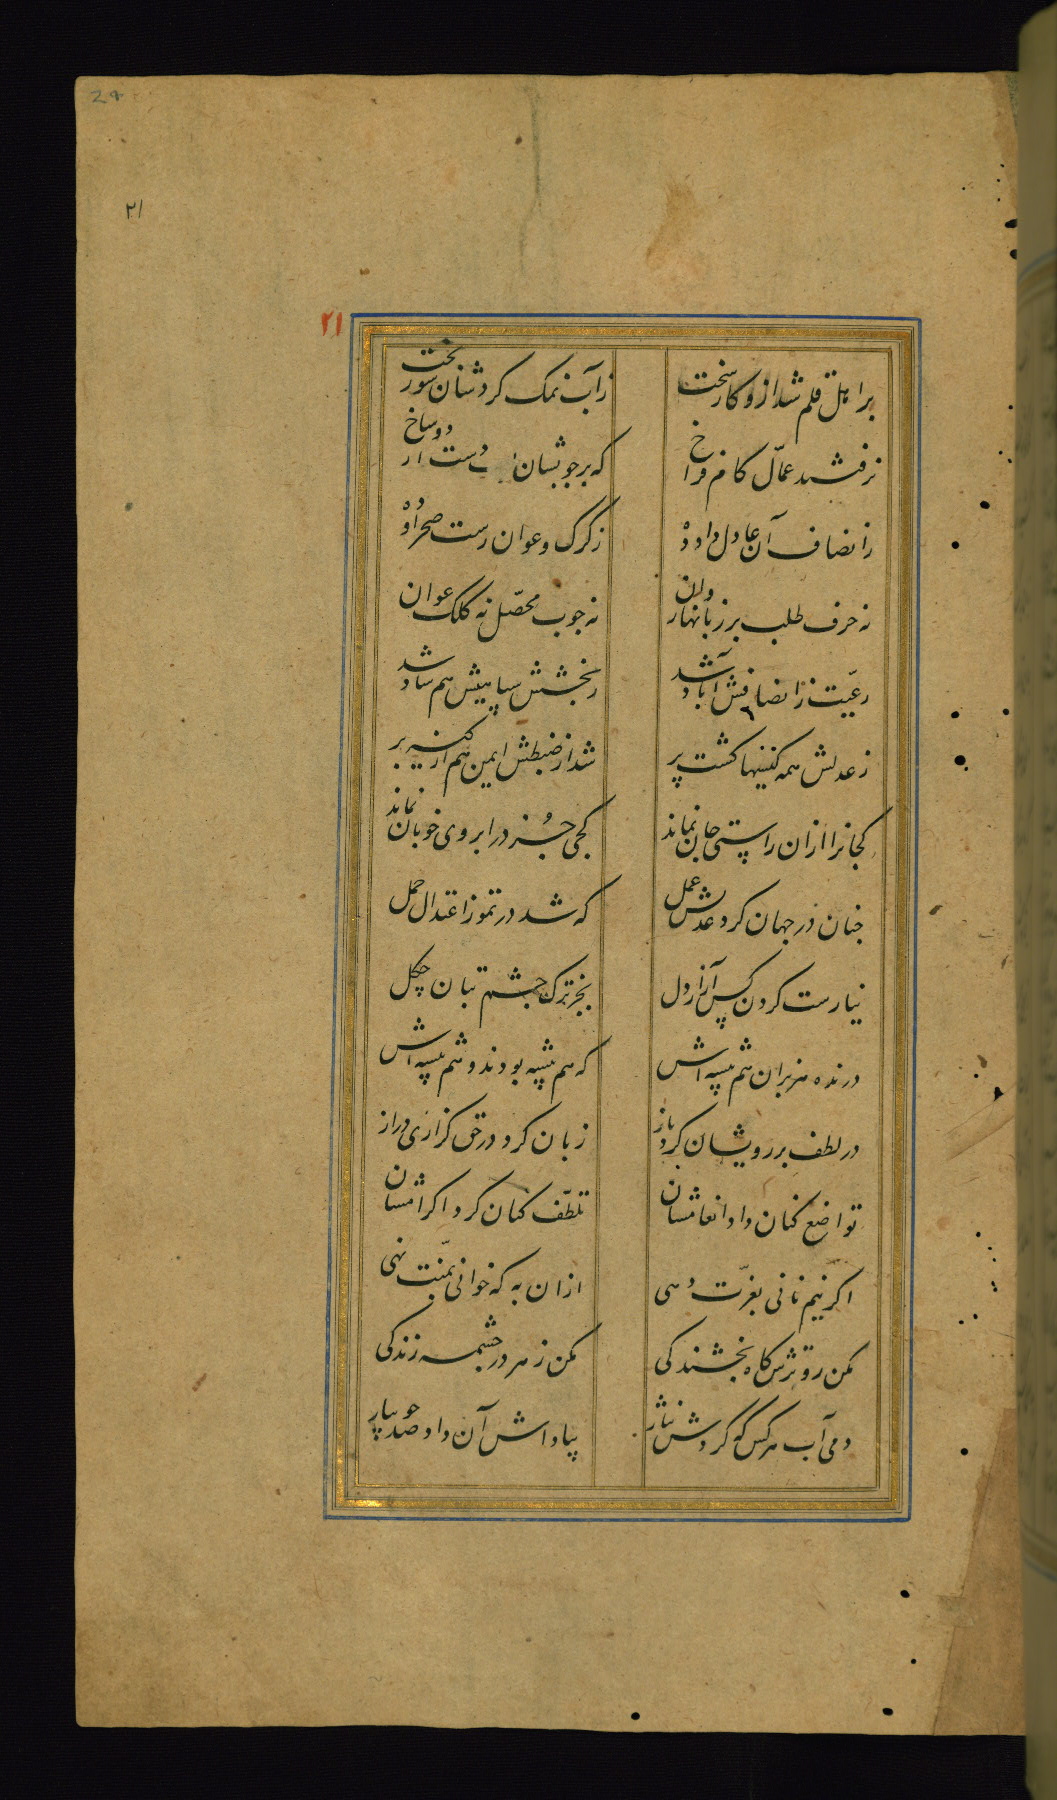 ۲۱
۲۱
بر اهل قلم شد ازو کار سخت
ز آب نمک کردشان شور بخت
نرفتند عمّال کام فراخ
که بر چوبشان دست دوساخ
ز انصاف آن عادل داد ده
ز کرک و عوان رست صحرا و ده
نه حرف طلب بر زبانها روان
نه چوب محصّل نه کلک عوان
رعیّت ز انصافش آباد شد
ز بخشش سپاهیش هم شاد شد
ز عدلش همه کشت پر
شد از ضبطش ایمن هم از کینه بر
کجانرا ازان راستی جان نماند
کجی جُز در ابروی خوبان نماند
چنان در جهان کرد عدلش عمل
که شد در تموز اعتدال حمل
نیارست کردن کس آزار دل
بجز ترک چشم بتان چکل
درنده هزبران هم پیشه اش
که هم پیشه بودند و هم پیشه اش
در لطف بر رویشان کرد باز
زبان کرد در حق کزاری دراز
تواضع کنان داد انعامشان
تلطّف کنان کرد اکرامشان
اکر نیم نانی بعزّت دهی
ازان به که خوانی بمنّت نهی
مکن رو ترش کاه بخشندکی
مکن زهر در چشمه زندکی
دمی آب هر کس که کردش نثار
بپاداش آن داد صد جویبار